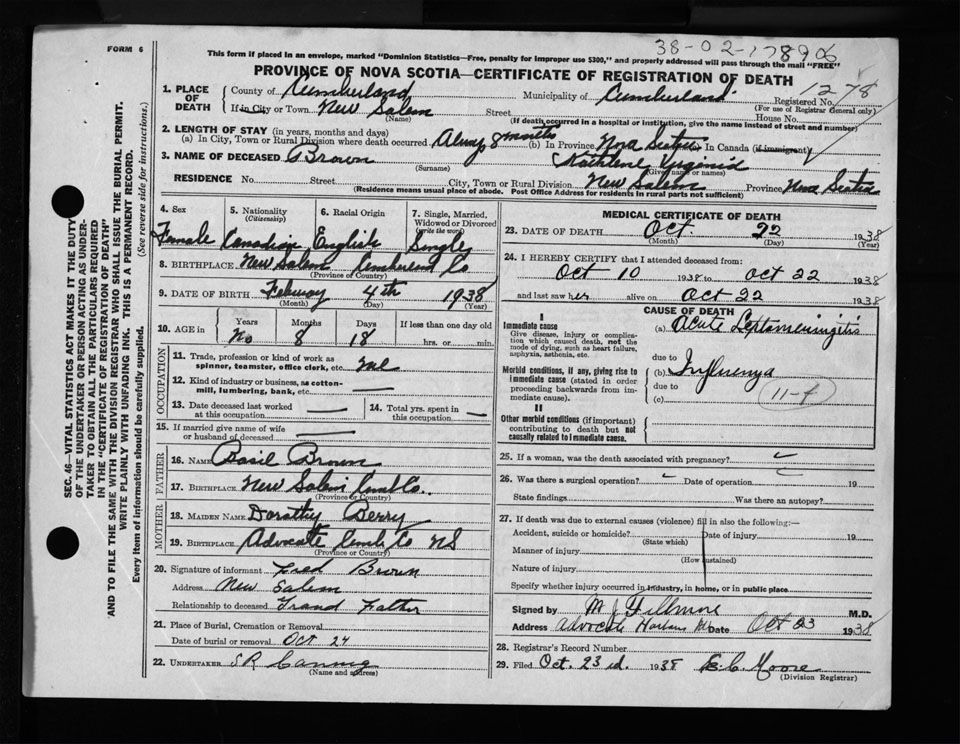 38-02-178906
FORM 6
This form if placed in an envelope, marked "Dominion Statistics—Free, penalty for improper use $300," and properly addressed will pass through the mail "FREE"
PROVINCE OF NOVA SCOTIA—CERTIFICATE OF REGISTRATION OF DEATH
1278
1. PLACE OF DEATH
County of Cumberland Municipality of Cumberland Registered No.
(For use of Registrar General only)
If in City or Town New Salem Street House No.
(Name) (If death occurred in a hospital or institution, give the name instead of street and number)
2. LENGTH OF STAY (in years, months and days)
(a) In City, Town or Rural Division where death occurred 8 months (b) In Province Nova Scotia In Canada (if immigrant)
3. NAME OF DECEASED Brown Kathlene Virginia
(Surname) (Given name or names)
RESIDENCE No. Street City, Town or Rural Division New Salem Province Nova Scotia
(Residence means usual place of abode. Post Office Address for residents in rural parts not sufficient)
4. Sex
Female
5. Nationality
(Citizenship)
Canadian
6. Racial Origin
English
7. Single, Married, Widowed or Divorced
(Write the word)
Single
8. BIRTHPLACE New Salem Cumberland Co
(Province or Country)
9. DATE OF BIRTH February 4th 1938
(Month) (Day) (Year)
10. AGE in Years Months Days If less than one day old
No 8 18 hrs. or min.
OCCUPATION
11. Trade, profession or kind of work as spinner, teamster, office clerk, etc.
12. Kind of industry or business, as cotton-mill, lumbering, bank, etc.
13. Date deceased last worked at this occupation
14. Total yrs. spent in this occupation
15. If married give name of wife or husband of deceased
FATHER
16. NAME Basil Brown
17. BIRTHPLACE New Salem Cumb Co.
(Province or Country)
MOTHER
18. MAIDEN NAME Dorothy Berry
19. BIRTHPLACE Advocate Cumb Co NS
(Province or Country)
20. Signature of informant Fred Brown
Address New Salem
Relationship to deceased Grand Father
21. Place of Burial, Cremation or Removal
Date of burial or removal Oct 24
22. UNDERTAKER S R Canning
(Name and address)
MEDICAL CERTIFICATE OF DEATH
23. DATE OF DEATH Oct 22 1938
(Month) (Day) (Year)
24. I HEREBY CERTIFY that I attended deceased from:
Oct 10 1938 to Oct 22 1938
and last saw her alive on Oct 22 1938
I
Immediate cause
Give disease, injury or complication which caused death, not the mode of dying, such as heart failure, asphyxia, asthenia, etc.
Morbid conditions, if any, giving rise to immediate cause (stated in order proceeding backwards from immediate cause).
II
Other morbid conditions (if important) contributing to death but not causally related to immediate cause.
CAUSE OF DEATH
(a) Acute Leptomeningitis
due to
(b) Influenza
due to
(c) 11-f
25. If a woman, was the death associated with pregnancy?
26. Was there a surgical operation? Date of operation 19
State findings Was there an autopsy?
27. If death was due to external causes (violence) fill in also the following:—
Accident, suicide or homicide? Date of injury 19
(State which)
Manner of injury
(How sustained)
Nature of injury
Specify whether injury occurred in industry, in home, or in public place
Signed by M J Fillmore M.D.
Address Advocate Harbour Date Oct 23 1938
28. Registrar's Record Number
29. Filed Oct. 23rd. 1938 E. C. Moore
(Division Registrar)
SEC. 46—VITAL STATISTICS ACT MAKES IT THE DUTY
OF THE UNDERTAKER OR PERSON ACTING AS UNDERTAKER TO OBTAIN ALL THE PARTICULARS REQUIRED
IN THE "CERTIFICATE OF REGISTRATION OF DEATH"
AND TO FILE THE SAME WITH THE DIVISION REGISTRAR WHO SHALL ISSUE THE BURIAL PERMIT.
WRITE PLAINLY WITH UNFADING INK. THIS IS A PERMANENT RECORD.
Every item of information should be carefully supplied. (See reverse side for instructions.)